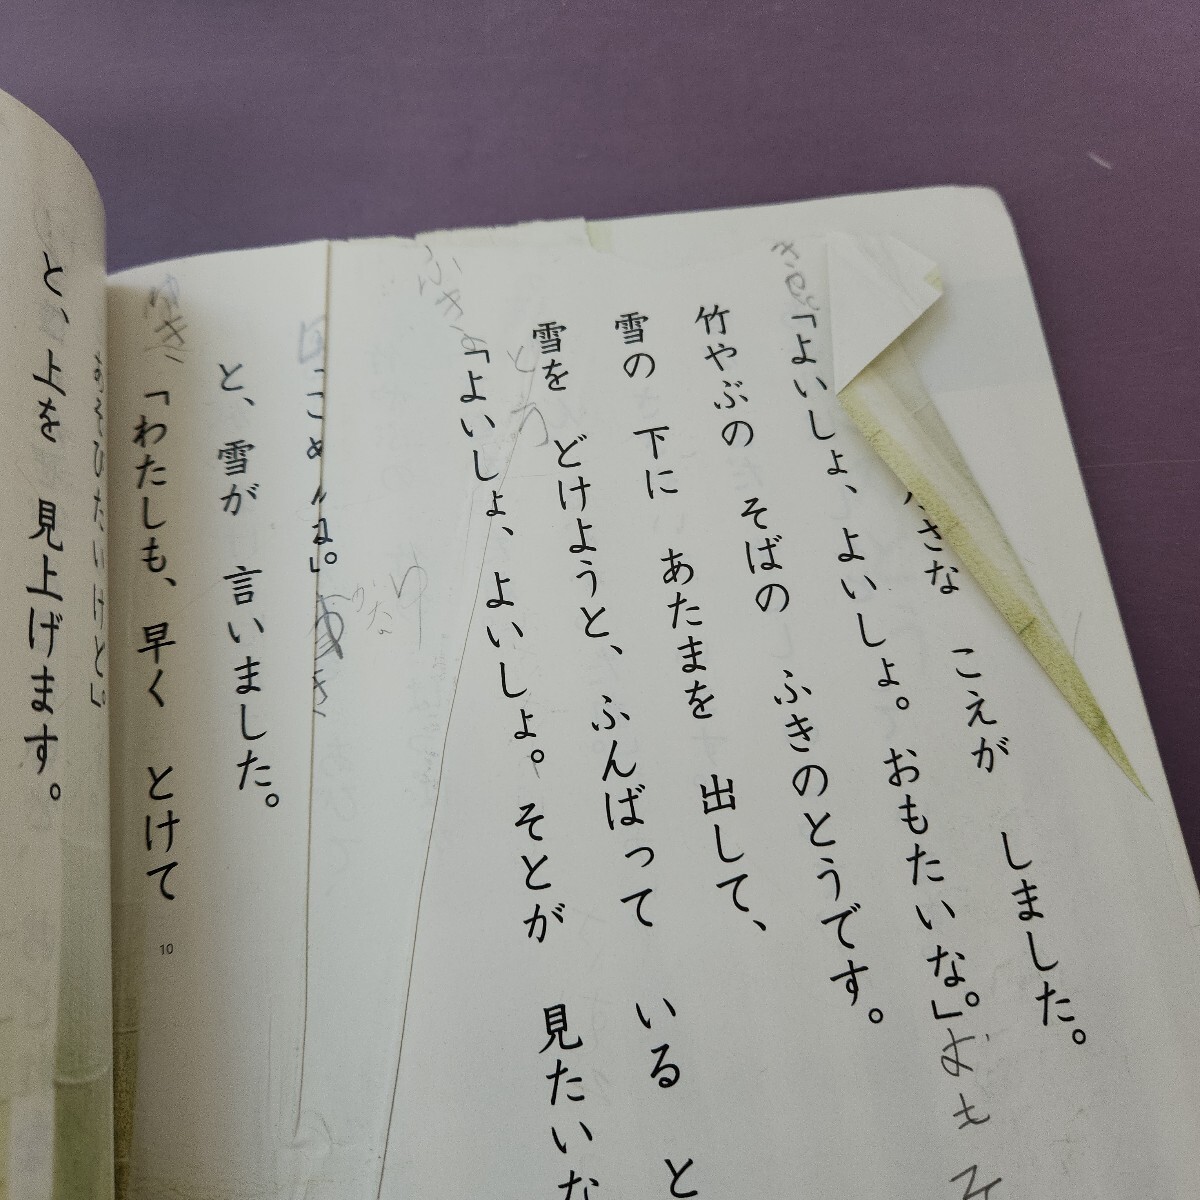 さな こえが しました。
「よいしょ、よいしょ。おもたいな。」
竹やぶの そばの ふきのとうです。
雪の 下に あたまを 出して、
雪を どけようと、ふんばって いる と
「よいしょ、よいしょ。そとが 見たいな
ふきの
とう
ごめんね。」
ゆき
と、雪が 言いました。
「わたしも、早く とけて
ゆき
10
あそびたいけど」
と、上を 見上げます。